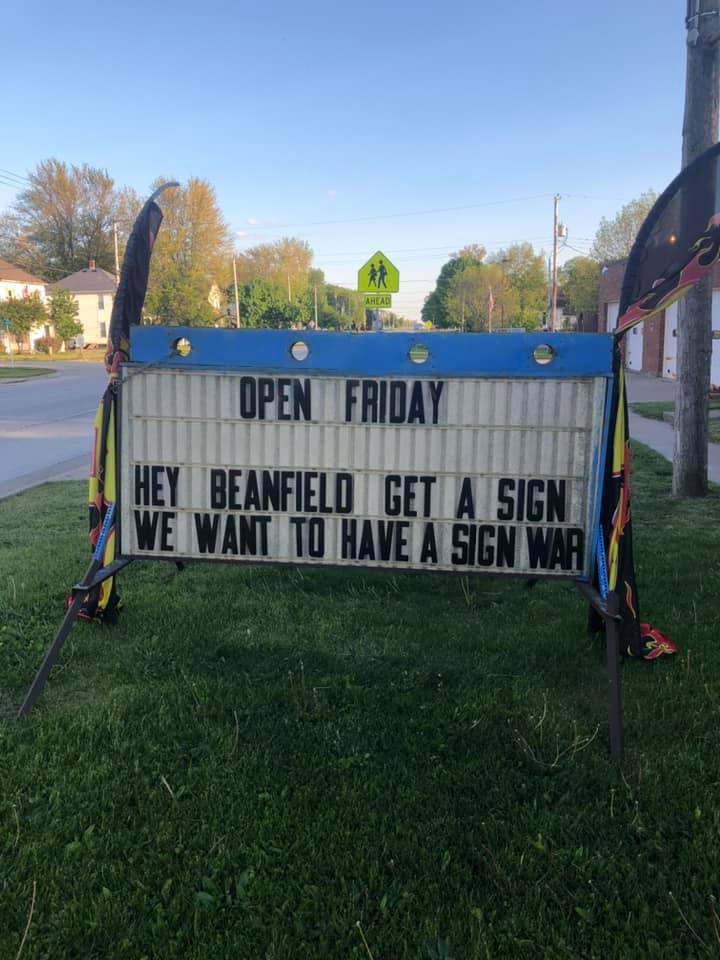 AHEAD
OPEN FRIDAY
HEY BEANFIELD GET A SIGN
WE WANT TO HAVE A SIGN WAR